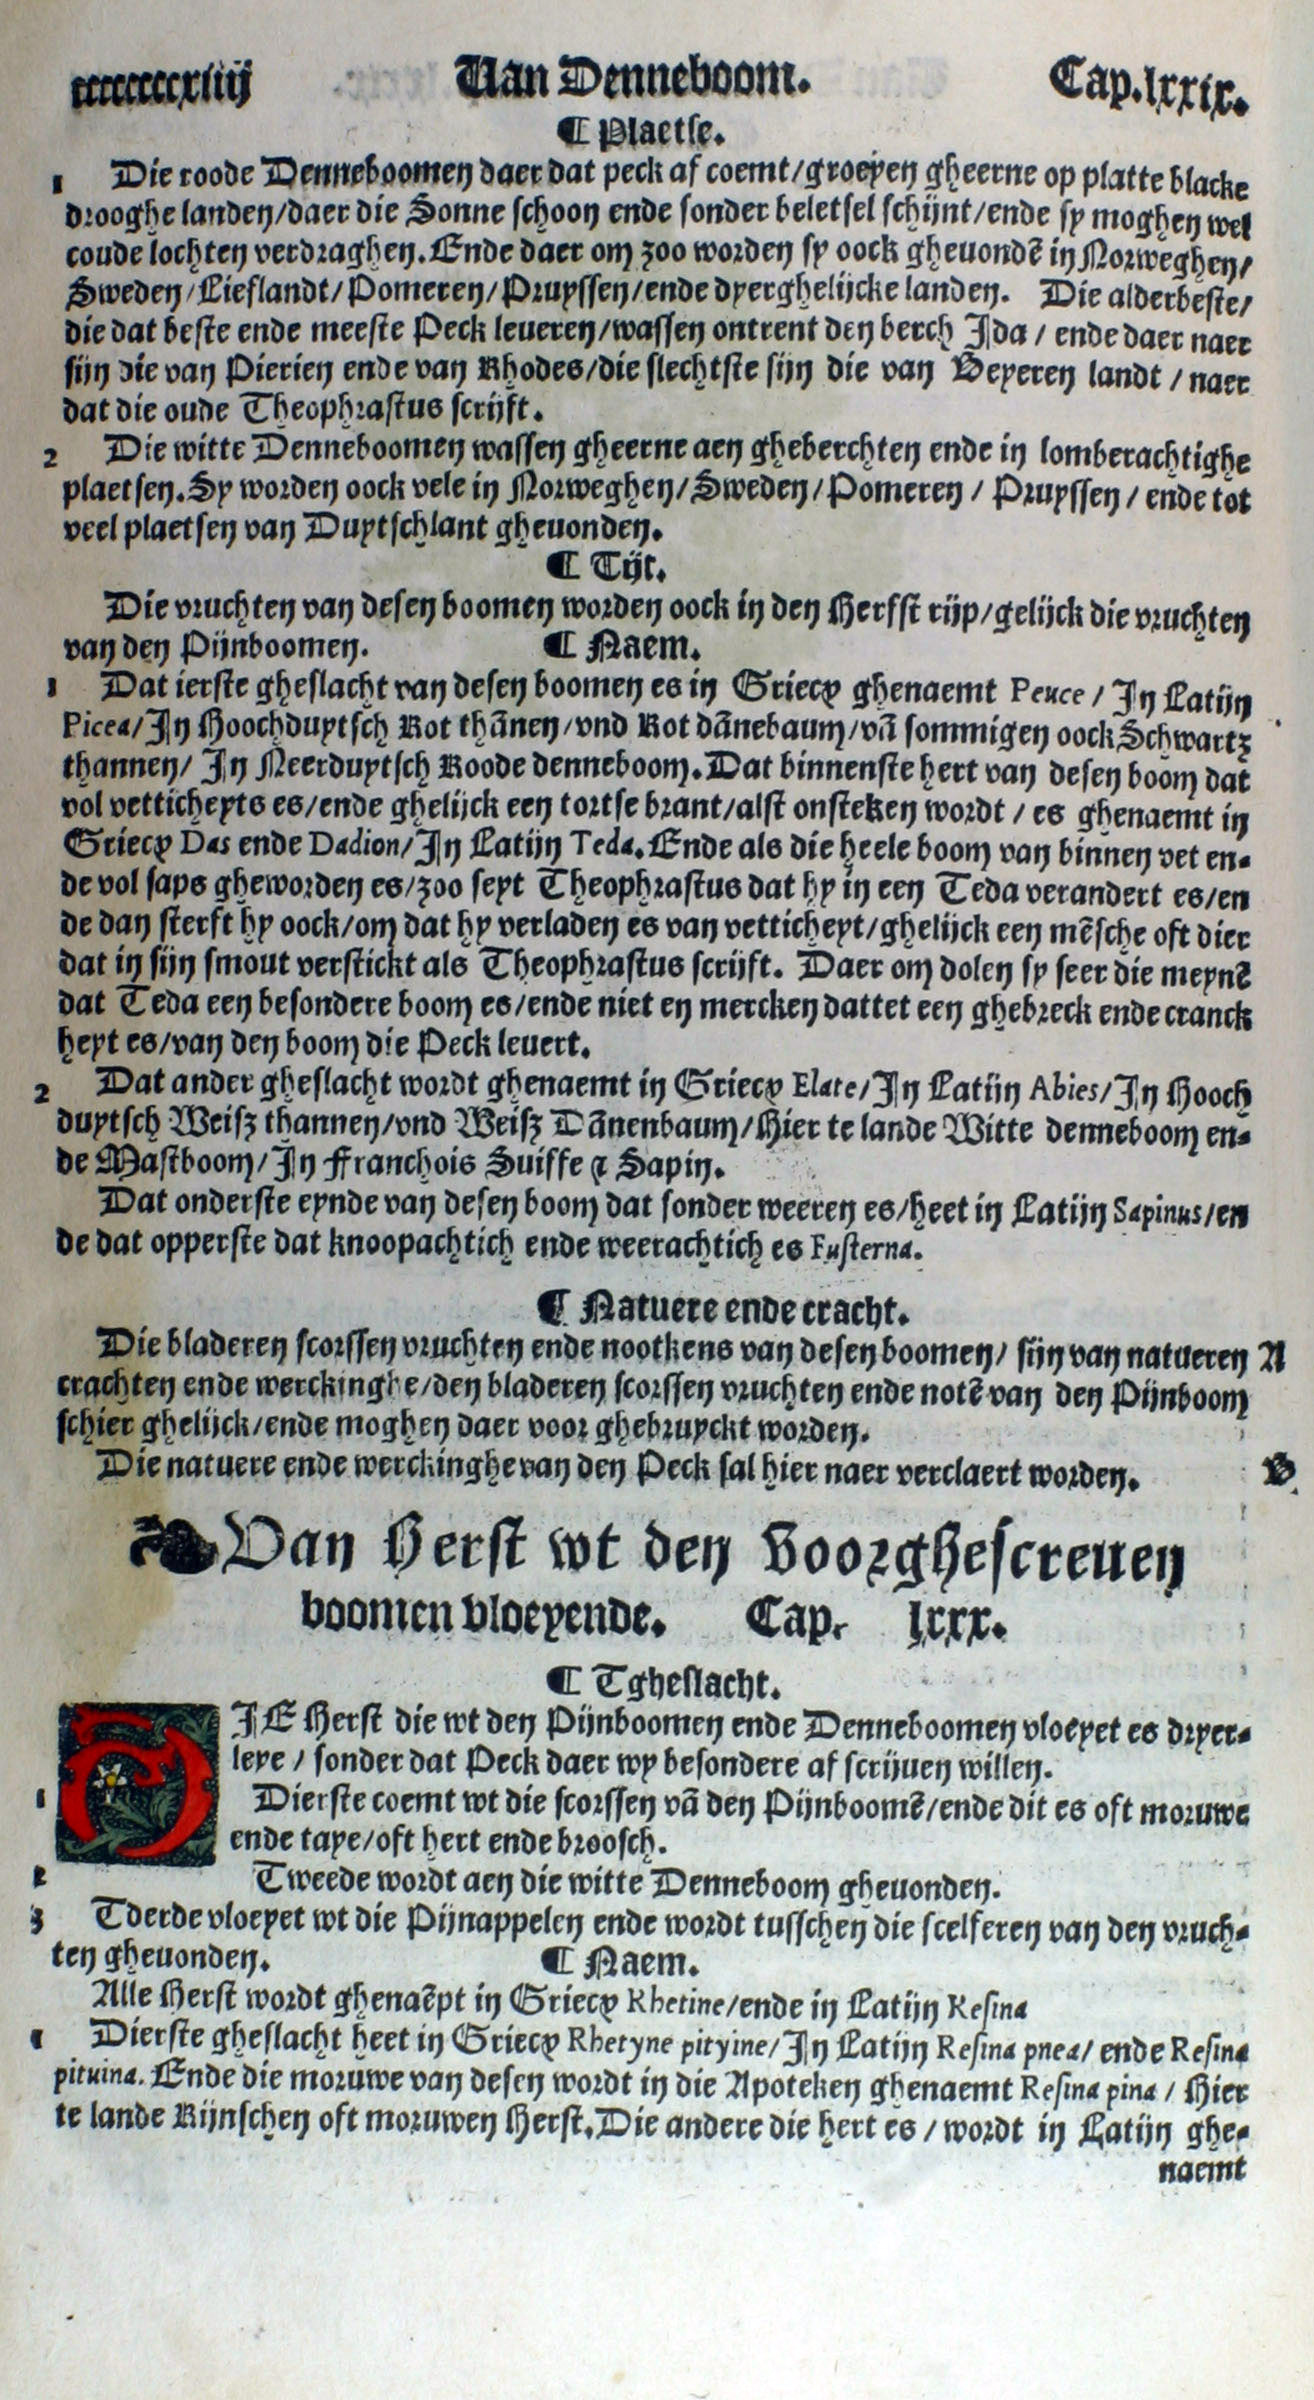 ccccccccxiiij Van Denneboom. Cap.lxxix.
¶ Plaetse.
1 Die roode Denneboomen daer dat peck af coemt/groeyen gheerne op platte blacke
drooghe landen/daer die Sonne schoon ende sonder beletsel schijnt/ende sy moghen wel
coude lochten verdraghen. Ende daer om zoo worden sy oock gheuondē in Norweghen/
Sweden/Lieflandt/Pomeren/Pruyssen/ende dyerghelijcke landen. Die alderbeste/
die dat beste ende meeste Peck leueren/wassen ontrent den berch Ida/ ende daer naer
sijn die van Pierien ende van Rhodes/die slechtste sijn die van Beyeren landt / naer
dat die oude Theophrastus scrijft.
2 Die witte Denneboomen wassen gheerne aen gheberchten ende in lomberachtighe
plaetsen. Sy worden oock vele in Norweghen/Sweden/Pomeren/ Pruyssen/ ende tot
veel plaetsen van Duytschlant gheuonden.
¶ Tijt.
Die vruchten van desen boomen worden oock in den Herfst rijp/gelijck die vruchten
van den Pijnboomen. ¶ Naem.
1 Dat ierste gheslacht van desen boomen es in Griecx ghenaemt Peuce / In Latijn
Picea/In Hoochduytsch Rot thānen/vnd Rot dānebaum/vā sommigen oock Schwartz
thannen/ In Neerduytsch Roode denneboom. Dat binnenste hert van desen boom dat
vol vetticheyts es/ende ghelijck een tortse brant/alst onsteken wordt / es ghenaemt in
Griecx Das ende Dadion/In Latijn Teda. Ende als die heele boom van binnen vet en-
de vol saps gheworden es/zoo seyt Theophrastus dat hy in een Teda verandert es/en
de dan sterft hy oock/om dat hy verladen es van vetticheyt/ghelijck een mēsche oft dier
dat in sijn smout verstickt als Theophrastus scrijft. Daer om dolen sy seer die meynē
dat Teda een besondere boom es/ende niet en mercken dattet een ghebreck ende cranck
heyt es/van den boom die Peck leuert.
2 Dat ander gheslacht wordt ghenaemt in Griecx Elate/In Latijn Abies/In Hooch
duytsch Weisz thannen/vnd Weisz Dānenbaum/Hier te lande Witte denneboom en-
de Mastboom/In Franchois Suiffe & Sapin.
Dat onderste eynde van desen boom dat sonder weeren es/heet in Latijn Sapinus/en
de dat opperste dat knoopachtich ende weerachtich es Fusterna.
¶ Natuere ende cracht.
Die bladeren scorssen vruchten ende nootkens van desen boomen/ sijn van natueren A
crachten ende werckinghe/den bladeren scorssen vruchten ende notē van den Pijnboom
schier ghelijck/ende moghen daer voor ghebruyckt worden.
Die natuere ende werckinghe van den Peck sal hier naer verclaert worden. B
Van Herst wt den Voorghescreuen
boomen vloeyende. Cap. lxxx.
¶ Tgheslacht.
DIE Herst die wt den Pijnboomen ende Denneboomen vloeyet es dryer-
leye / sonder dat Peck daer wy besondere af scrijuen willen.
1 Dierste coemt wt die scorssen vā den Pijnboomē/ende dit es oft moruwe
ende taye/oft hert ende broosch.
2 Tweede wordt aen die witte Denneboom gheuonden.
3 Tderde vloeyet wt die Pijnappelen ende wordt tusschen die scelferen van den vruch-
ten gheuonden. ¶ Naem.
Alle Herst wordt ghenaēpt in Griecx Rhetine/ende in Latijn Resina
1 Dierste gheslacht heet in Griecx Rhetyne pityine/In Latijn Resina pnea/ ende Resina
pituina. Ende die moruwe van desen wordt in die Apoteken ghenaemt Resina pina / Hier
te lande Rijnschen oft moruwen Herst. Die andere die hert es / wordt in Latijn ghe-
naemt